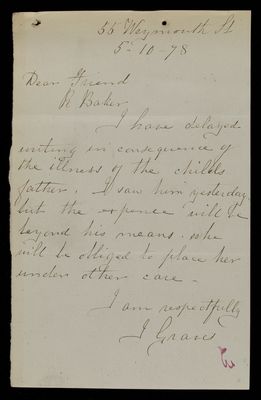 55 Weymouth St
5-10-78
Dear Friend
R Baker
I have delayed
writing in consequence of
the illness of the childs
father. I saw him yesterday
but the expence will be
beyond his means. she
will be obliged to place her
under other care -
I am respectfully
J Graves